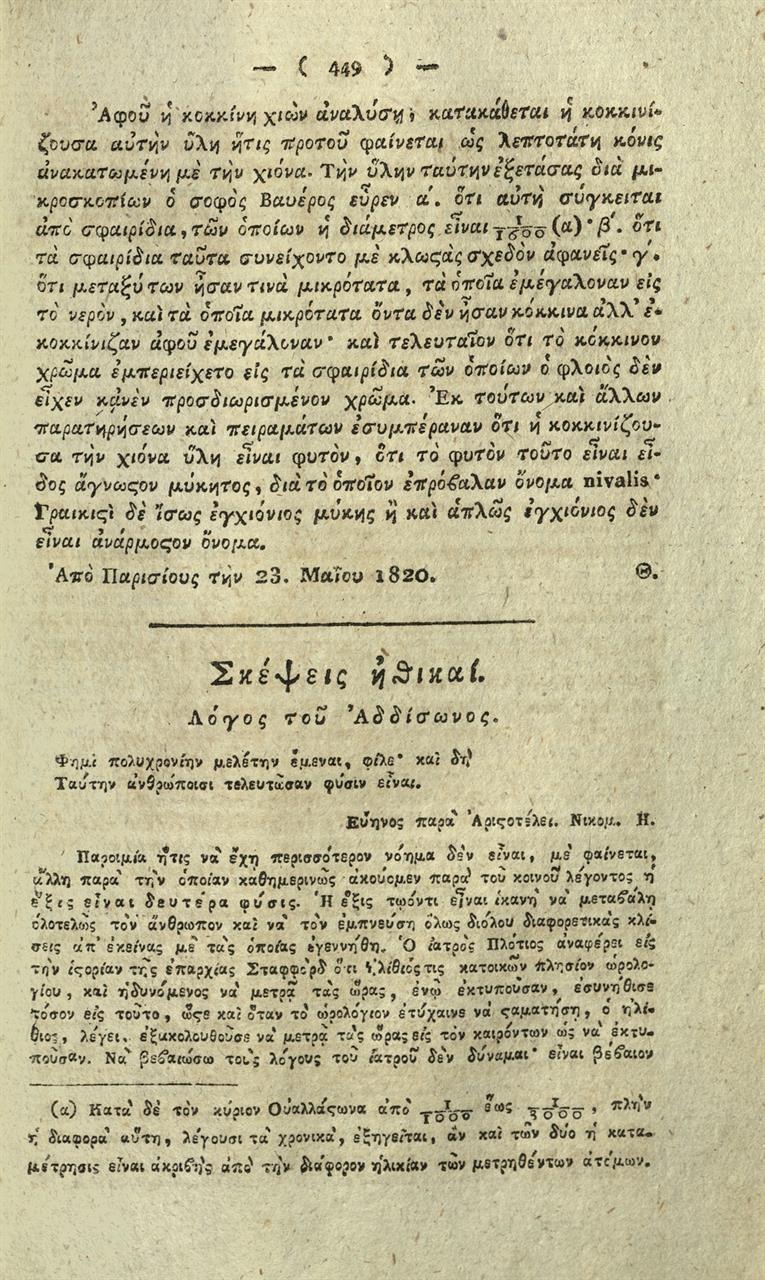 — ( 449 ) —
Ἀφοῦ ἡ κοκκίνη χιὼν ἀναλύσῃ, κατακάθεται ἡ κοκκινί-
ζουσα αὐτὴν ὕλη ἥτις προτοῦ φαίνεται ὡς λεπτοτάτη κόνις
ἀνακατωμένη μὲ τὴν χιόνα. Τὴν ὕλην ταύτην ἐξετάσας διὰ μι-
κροσκοπίων ὁ σοφὸς Βαυέρος εὗρεν α΄. ὅτι αὐτὴ σύγκειται
ἀπὸ σφαιρίδια, τῶν ὁποίων ἡ διάμετρος εἶναι 1/1600 (α)· β΄. ὅτι
τὰ σφαιρίδια ταῦτα συνείχοντο μὲ κλωϛὰς σχεδὸν ἀφανεῖς· γ΄.
ὅτι μεταξύ των ἦσαν τινὰ μικρότατα, τὰ ὁποῖα ἐμέγαλοναν εἰς
τὸ νερὸν, καὶ τὰ ὁποῖα μικρότατα ὄντα δὲν ἦσαν κόκκινα ἀλλ' ἐ-
κοκκίνιζαν ἀφοῦ ἐμεγάλοναν· καὶ τελευταῖον ὅτι τὸ κόκκινον
χρῶμα ἐμπεριείχετο εἰς τὰ σφαιρίδια τῶν ὁποίων ὁ φλοιὸς δὲν
εἶχεν κᾀνὲν προσδιωρισμένον χρῶμα. Ἐκ τούτων καὶ ἄλλων
παρατηρήσεων καὶ πειραμάτων ἐσυμπέραναν ὅτι ἡ κοκκινίζου-
σα τὴν χιόνα ὕλη εἶναι φυτὸν, ὅτι τὸ φυτὸν τοῦτο εἶναι εἶ-
δος ἄγνωϛον μύκητος, διὰ τὸ ὁποῖον ἐπρόβαλαν ὄνομα nivalis·
Γραικιϛὶ δὲ ἴσως ἐγχιόνιος μύκης ἢ καὶ ἁπλῶς ἐγχιόνιος δὲν
εἶναι ἀνάρμοϛον ὄνομα.
Ἀπὸ Παρισίους τὴν 23. Μαΐου 1820. Θ.
Σκέψεις ἠθικαί.
Λόγος τοῦ Ἀδδίσωνος.
Φημὶ πολυχρονίην μελέτην ἔμεναι, φίλε· καὶ δὴ
Ταύτην ἀνθρώποισι τελευτῶσαν φύσιν εἶναι.
Εὔηνος παρὰ Ἀριϛοτέλει. Νικομ. Η.
Παροιμία ἥτις νὰ ἔχῃ περισσότερον νόημα δὲν εἶναι, μὲ φαίνεται,
ἄλλη παρὰ τὴν ὁποίαν καθημερινῶς ἀκούομεν παρὰ τοῦ κοινοῦ λέγοντος ἡ
ἕξις εἶναι δευτέρα φύσις. Ἡ ἕξις τῳόντι εἶναι ἱκανὴ νὰ μεταβάλῃ
ὁλοτελῶς τὸν ἄνθρωπον καὶ νὰ τὸν ἐμπνεύσῃ ὅλως διόλου διαφορετικὰς κλί-
σεις ἀπ' ἐκείνας μὲ τὰς ὁποίας ἐγεννήθη. Ὁ ἰατρὸς Πλότιος ἀναφέρει εἰς
τὴν ἱϛορίαν τῆς ἐπαρχίας Σταφφορδ ὅτι ἠλίθιός τις κατοικῶν πλησίον ὡρολο-
γίου, καὶ ἠδυνόμενος νὰ μετρᾷ τὰς ὥρας, ἐνῷ ἐκτυπούσαν, ἐσυνήθισε
τόσον εἰς τοῦτο, ὥϛε καὶ ὅταν τὸ ὡρολόγιον ἐτύχαινε νὰ ϛαματήσῃ, ὁ ἠλί-
θιος, λέγει, ἐξακολουθοῦσε νὰ μετρᾷ τὰς ὥρας εἰς τὸν καιρόντων ὡς νὰ ἐκτυ-
ποῦσαν. Νὰ βεβαιώσω τοὺς λόγους τοῦ ἰατροῦ δὲν δύναμαι· εἶναι βέβαιον
(α) Κατὰ δὲ τὸν κύριον Οὐαλλάϛωνα ἀπὸ 1/1000 ἕως 1/3000, πλὴν
ἡ διαφορὰ αὕτη, λέγουσι τὰ χρονικὰ, ἐξηγεῖται, ἂν καὶ τῶν δύο ἡ κατα-
μέτρησις εἶναι ἀκριβὴς ἀπὸ τὴν διάφορον ἡλικίαν τῶν μετρηθέντων ἀτόμων.